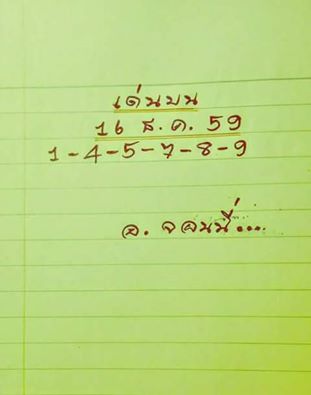 เด่นบน
16 ธ.ค. 59
1-4-5-7-8-9
อ. จอนนี่....